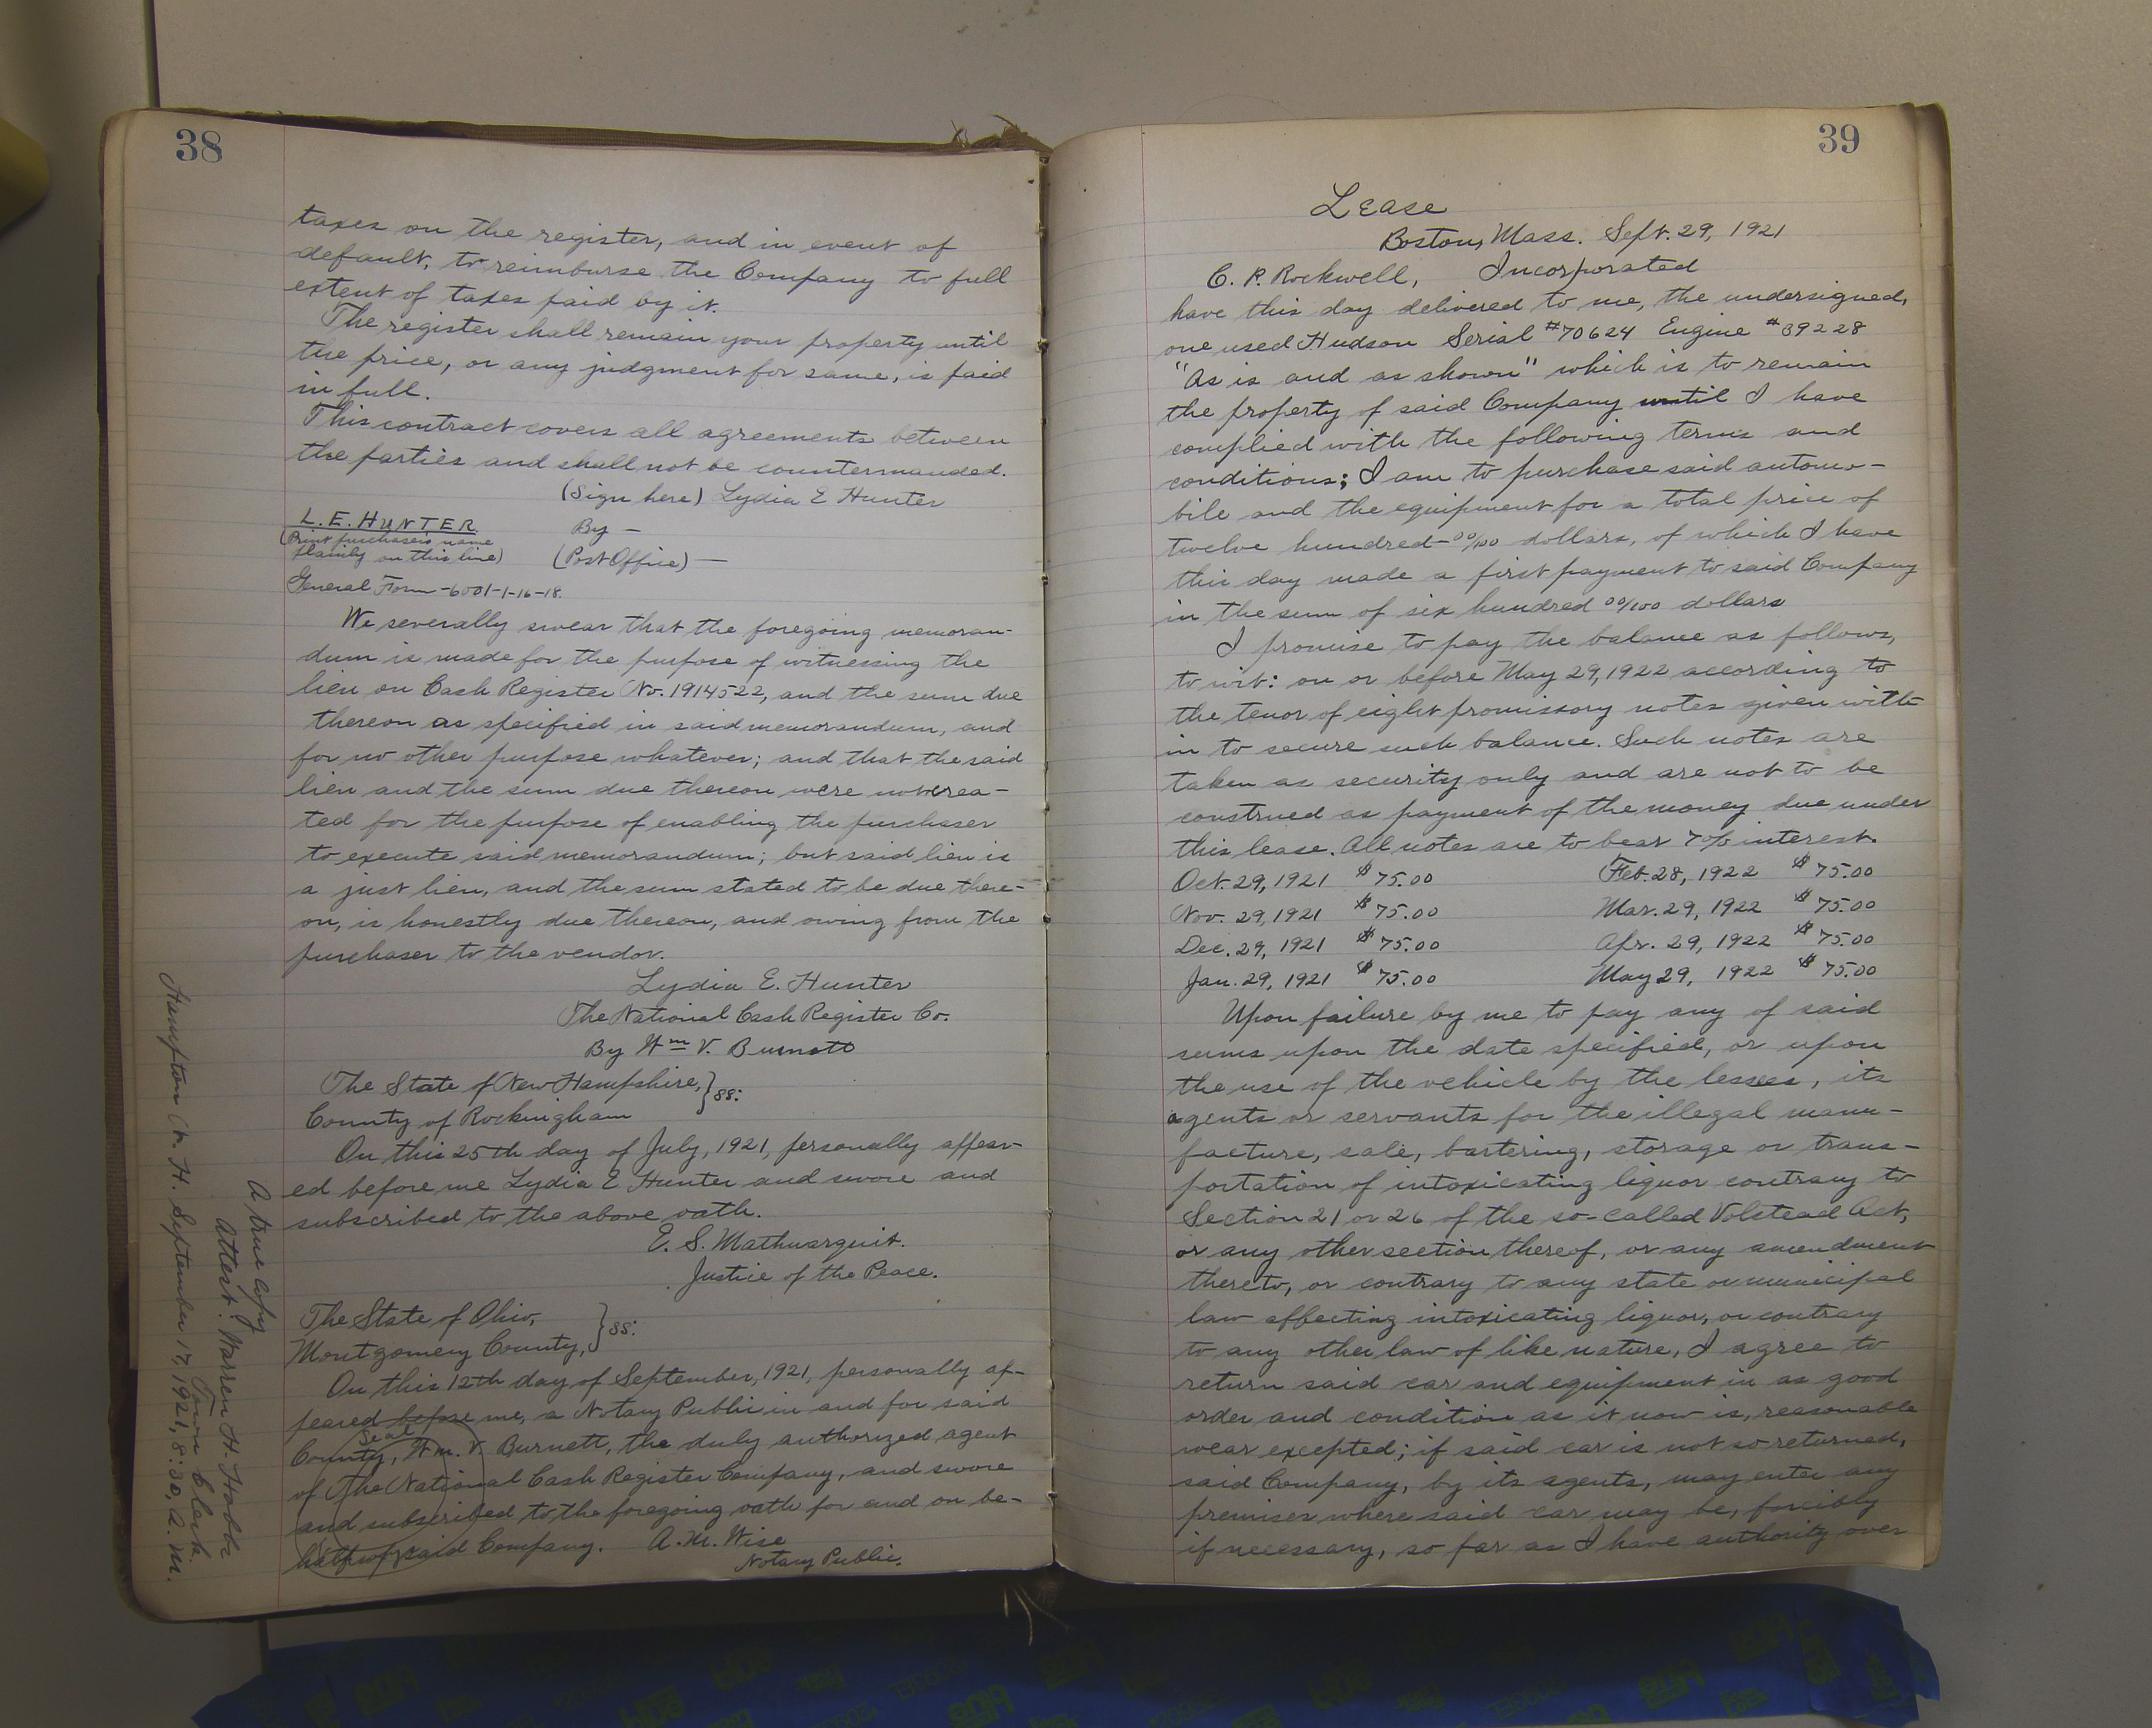 38
taxes on the register, and in event of
default, to reimburse the Company to full
extent of taxes paid by it.
The register shall remain your property until
the price, or any judgment for same, is paid
in full.
This contract covers all agreements between
the parties and shall not be countermanded.
(Sign here) Lydia E Hunter
L. E. HUNTER By —
(Print purchaser's name
plainly on this line) (Post Office) —
General Form - 6001-1-16-18.
We severally swear that the foregoing memoran-
dum is made for the purpose of witnessing the
lien on Cash Register No. 1914522, and the sum due
thereon as specified in said memorandum, and
for no other purpose whatever; and that the said
lien and the sum due thereon were not crea-
ted for the purpose of enabling the purchaser
to execute said memorandum; but said lien is
a just lien, and the sum stated to be due there-
on, is honestly due thereon, and owing from the
purchaser to the vendor.
Lydia E. Hunter
The National Cash Register Co.
By Wm V. Burnett
The State of New Hampshire, } ss:
County of Rockingham
On this 25th day of July, 1921, personally appear-
ed before me Lydia E Hunter and swore and
subscribed to the above oath.
E. S.
Justice of the Peace.
The State of Ohio, } ss:
Montgomery County,
On this 12th day of September, 1921, personally ap-
peared before me, a Notary Public in and for said
Seal
County, Wm. V. Burnett, the duly authorized agent
of The National Cash Register Company, and swore
and subscribed to the foregoing oath for and on be-
half of said Company. A. M. Wise
Notary Public.
A true copy
Attest: Warren H. Hobbs
Town Clerk.
Hampton N. H. September 17, 1921, 8:30, A. M.
39
Lease
Boston, Mass. Sept. 29, 1921
C. P. Rockwell, Incorporated
have this day delivered to me, the undersigned,
one used Hudson Serial #70624 Engine #39228
"As is and as shown" which is to remain
the property of said Company until I have
complied with the following terms and
conditions; I am to purchase said automo-
bile and the equipment for a total price of
twelve hundred - 00/100 dollars, of which I have
this day made a first payment to said Company
in the sum of six hundred 00/100 dollars
I promise to pay the balance as follows,
to wit: on or before May 29, 1922 according to
the tenor of eight promissory notes given with-
in to secure such balance. Such notes are
taken as security only and are not to be
construed as payment of the money due under
this lease. All notes are to bear 7% interest.
Oct. 29, 1921 $75.00 Feb. 28, 1922 $75.00
Nov. 29, 1921 $75.00 Mar. 29, 1922 $75.00
Dec. 29, 1921 $75.00 Apr. 29, 1922 $75.00
Jan. 29, 1921 $75.00 May 29, 1922 $75.00
Upon failure by me to pay any of said
sums upon the date specified, or upon
the use of the vehicle by the lessee, its
agents or servants for the illegal manu-
facture, sale, bartering, storage or trans-
portation of intoxicating liquor contrary to
Section 21 or 26 of the so-called Volstead Act,
or any other section thereof, or any amendment
thereto, or contrary to any state or municipal
law affecting intoxicating liquor, or contrary
to any other law of like nature, I agree to
return said car and equipment in as good
order and condition as it now is, reasonable
wear excepted; if said car is not so returned,
said Company, by its agents, may enter any
premises where said car may be, forcibly
if necessary, so far as I have authority over